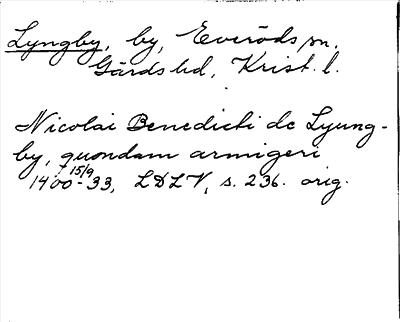 Lyngby, by, Everöds sn.
Gärds hd, Krist. l.
Nicolai Benedicti de Lyung-
by, quondam armigeri
1400 15/9 - 33, LDLV, s. 236. orig.